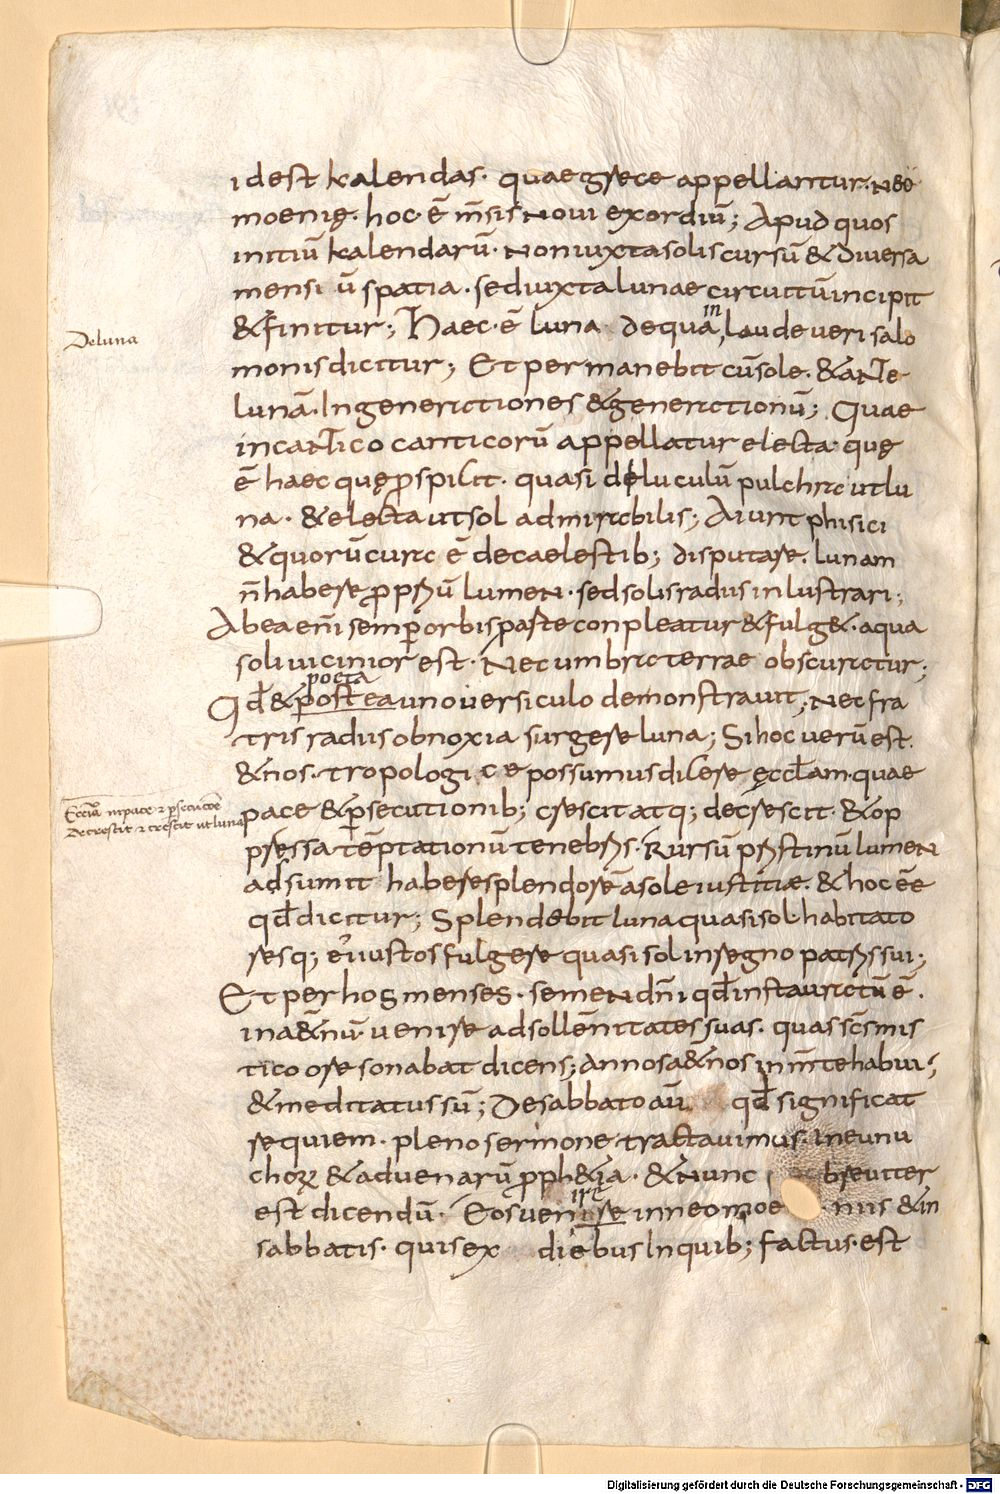 idest kalendas. quae grece appellantur. neo
moenię. hoc. ē m̄sis noui exordiū; Apud quos
initiū kalendarū. non iuxta solis cursū & diuersa
mensi ū spatia. sed iuxta lunae circuitū incipit
& finitur; Haec. ē luna de qua in laude ueri salo
De luna
monis dicitur; Et permanebit cū sole. & ante
lunā. In generationes & generationū; Quae
in cantico canticorū appellatur electa. quę
ē haec quę ꝓspicit. quasi deluculū pulchra ut lu
na. & electa ut sol admirabilis; Aiunt phisici
& quorū cura ē de caelestib; disputare. lunam
n̄ habere ꝓpriū lumen. sed solis radiis inlustrari;
Ab ea eni semꝑ orbis parte conpleatur & fulg&. a qua
soli uicinior est. Nec umbra terrae obscuratur;
poeta
Qd̄ & postea uno uersiculo demonstrauit; Nec fra
tris radiis obnoxia surgere luna; Si hoc uerū est.
& nos. tropologice possumus dicere ęccl̄am. quae
pace & ꝑsecutionib; crescit atq; decrescit. & op
Eccl̄ia in pace & ꝑsecuc̄oe
Decrescit & crescit ut luna
pressa tēptationū tenebris. Rursū pristinū lumen
adsumit habere splendore a sole iustitiae. & hoc eē
qd̄ dicitur; Splendebit luna quasi sol. habitato
resq; ei iustos fulgere quasi sol in regno patris sui;
Et per hos menses. semen dn̄i qd̄ instauratū ē.
in a&̄nū. uenire ad sollēnitates suas. quas scs̄ mis
tico ore sonabat dicens; annos a&̄nos in m̄te habui;
& meditatus sū; De sabbato aū qd̄ significat
requiem. pleno sermone tractauimus. In eunu
choꝝ & aduenarū ꝓph&ia. & nunc breuiter
est dicendū. Eos uenire in neomoe niis & in
ire
sabbatis. qui sex diebus In quib; factus. est
Digitalisierung gefördert durch die Deutsche Forschungsgemeinschaft - DFG